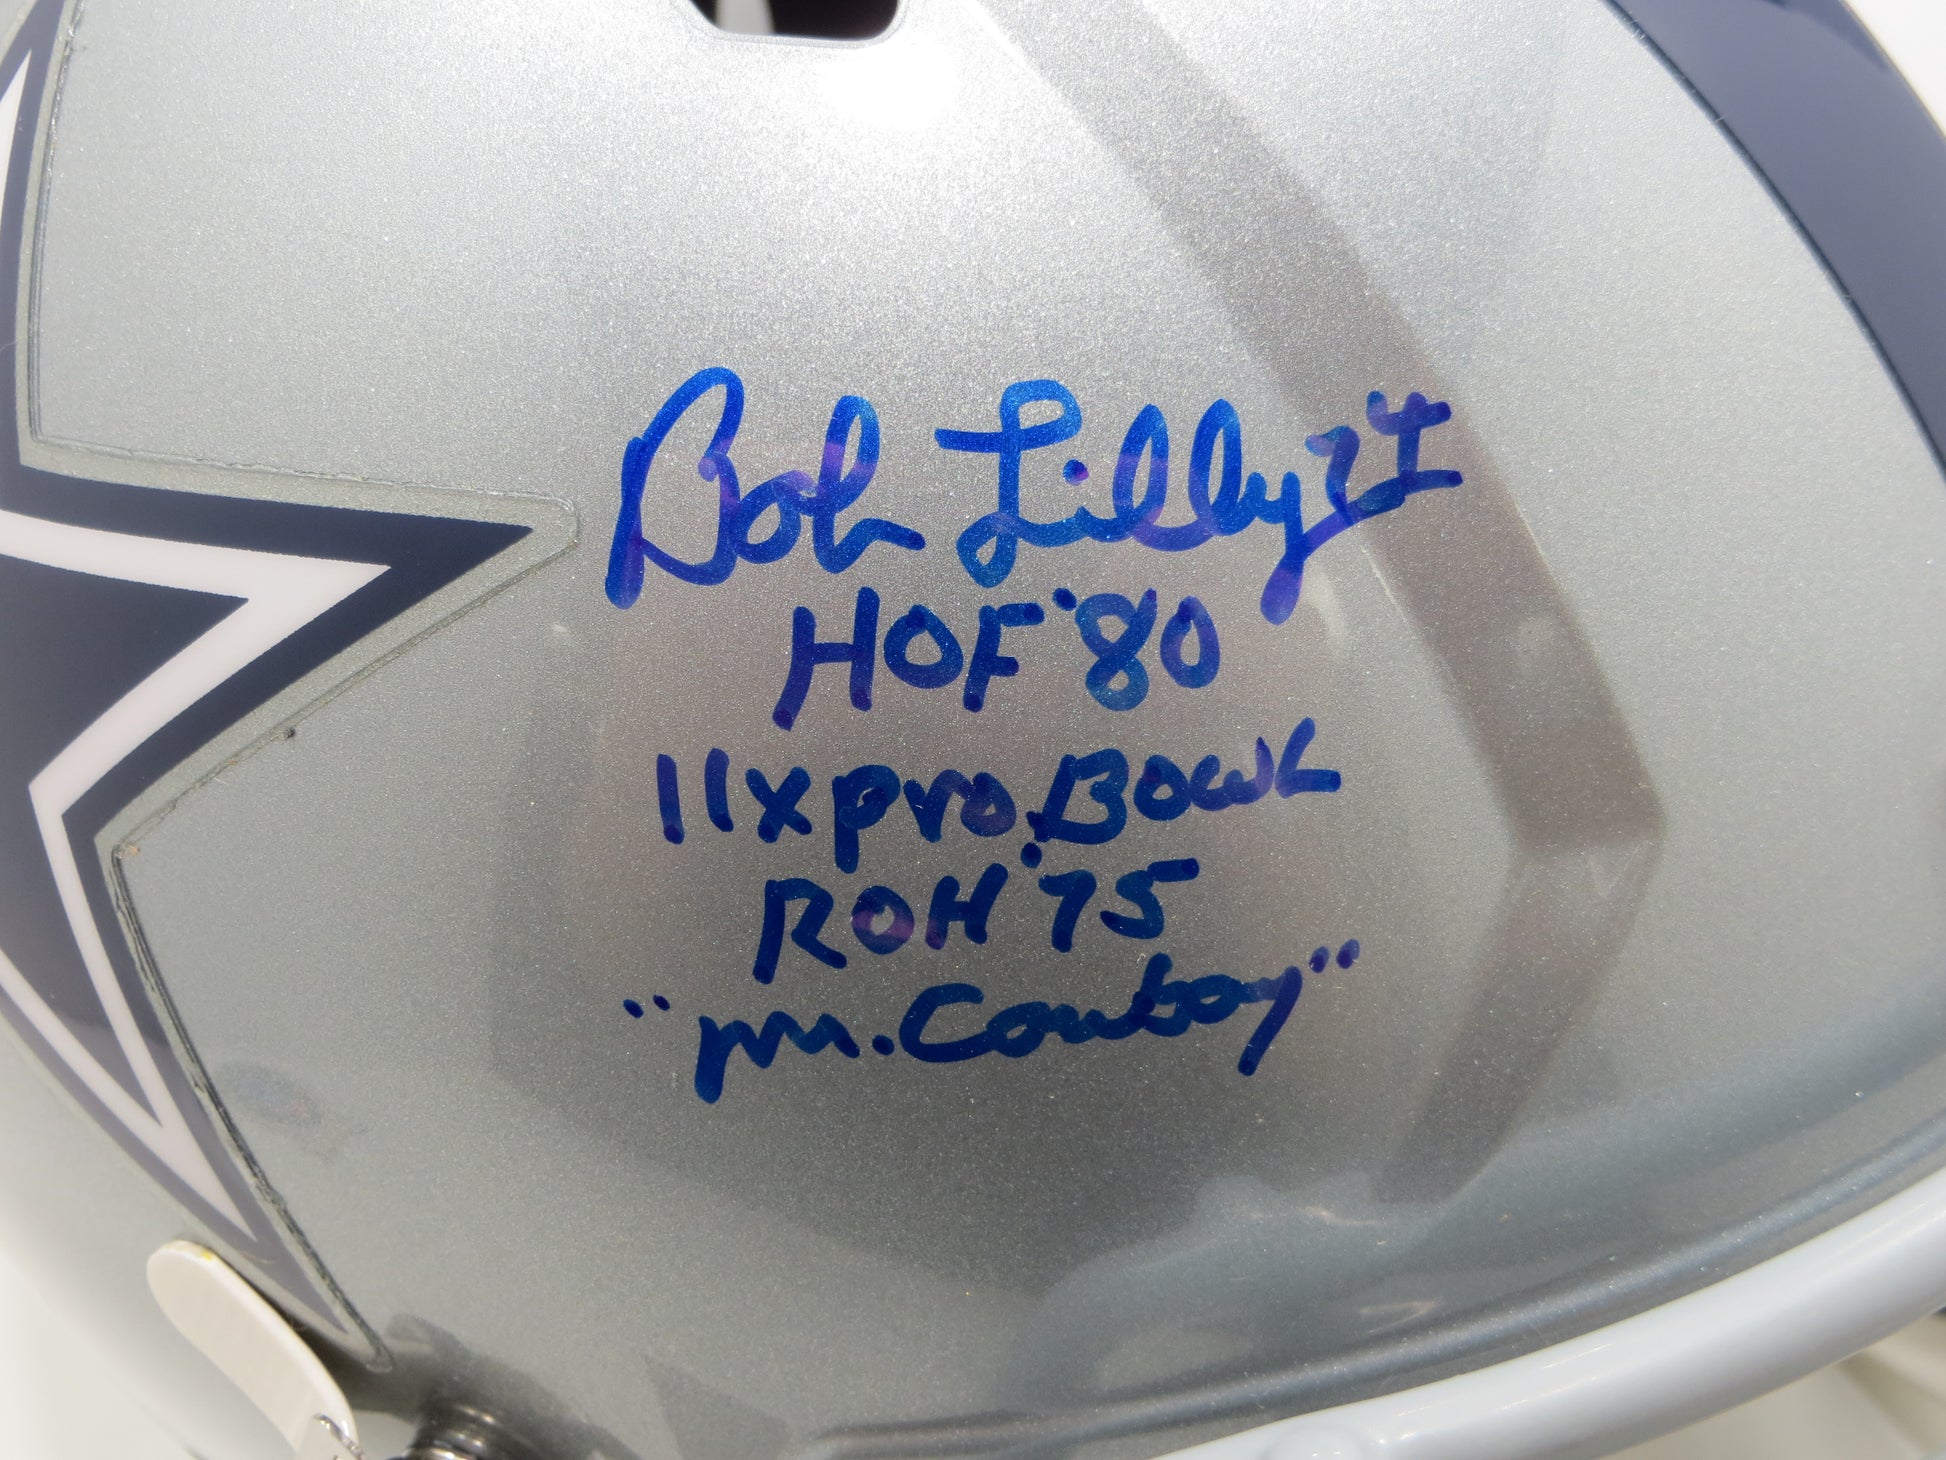 Bob Lilly 74
HOF '80
11x pro.Bowl
ROH '75
"Mr. Cowboy"